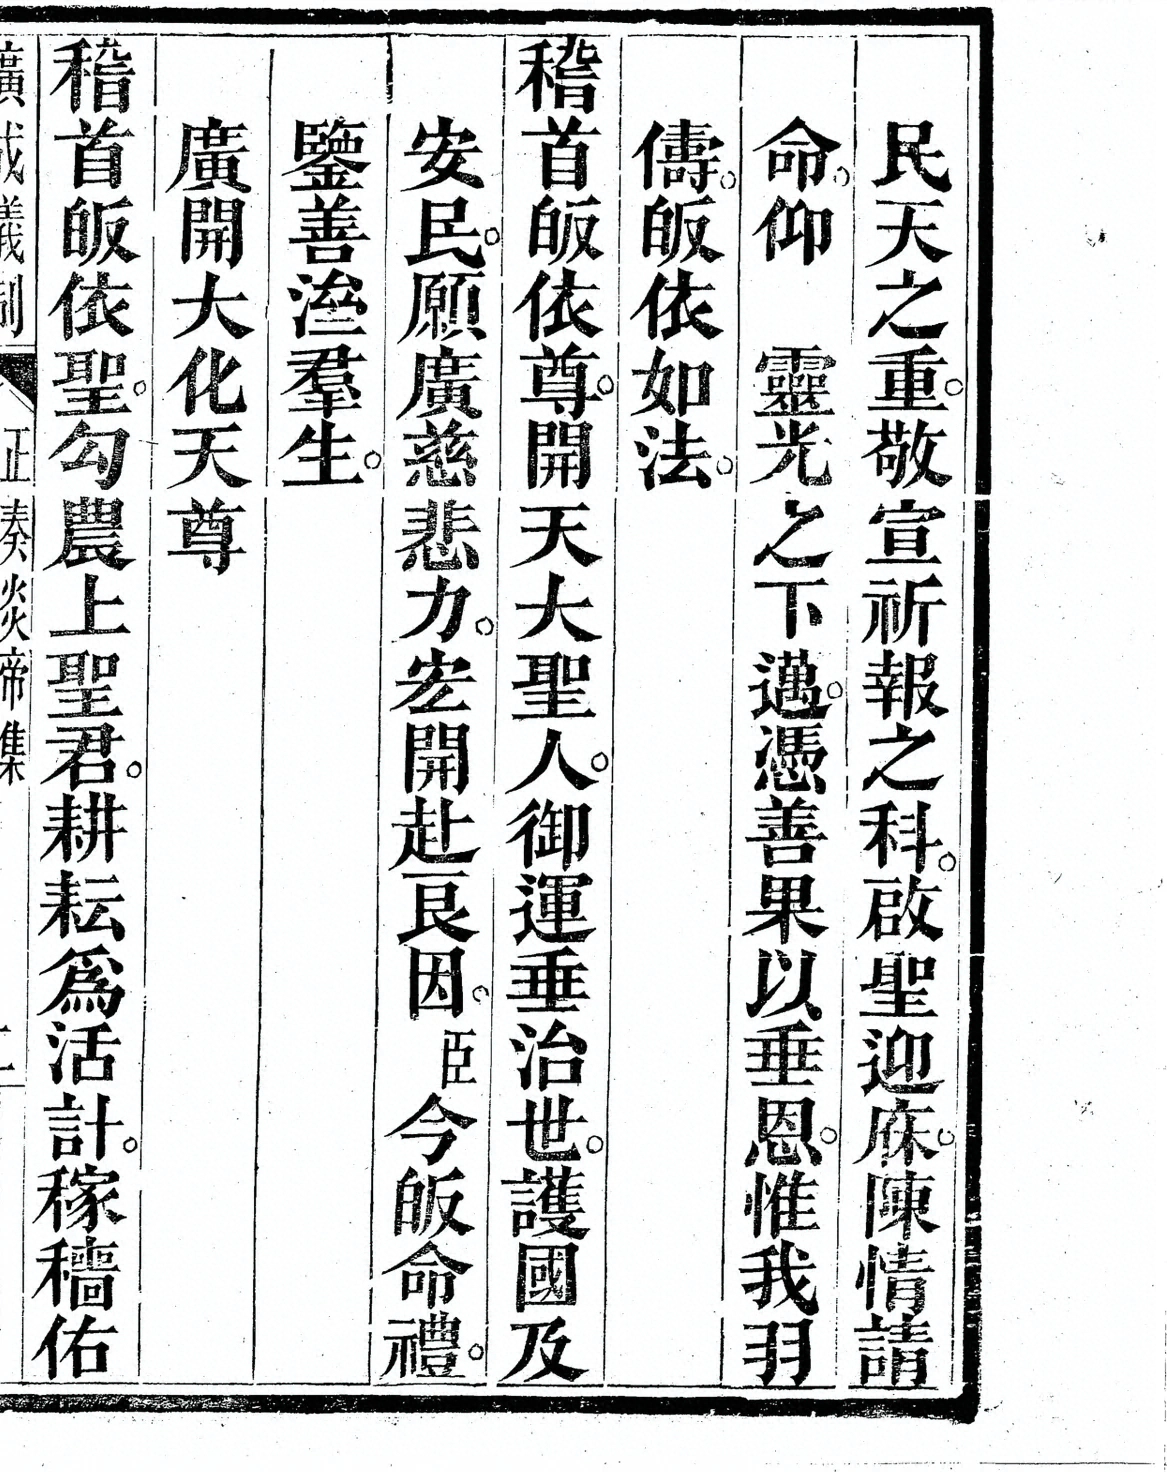 民天之重。敬宣祈報之科。啟聖迎庥。陳情請
命。仰　靈光之下邁。憑善果以垂恩。惟我羽
儔。皈依如法。
稽首皈依尊。開天大聖人。御運垂治世。護國及
安民。願廣慈悲力。宏開赴良因。臣今皈命禮。
鑒善溼羣生。
廣開大化天尊
稽首皈依聖。勾農上聖君。耕耘爲活計。稼穡佑
廣成儀制　正奏炎帝集　二